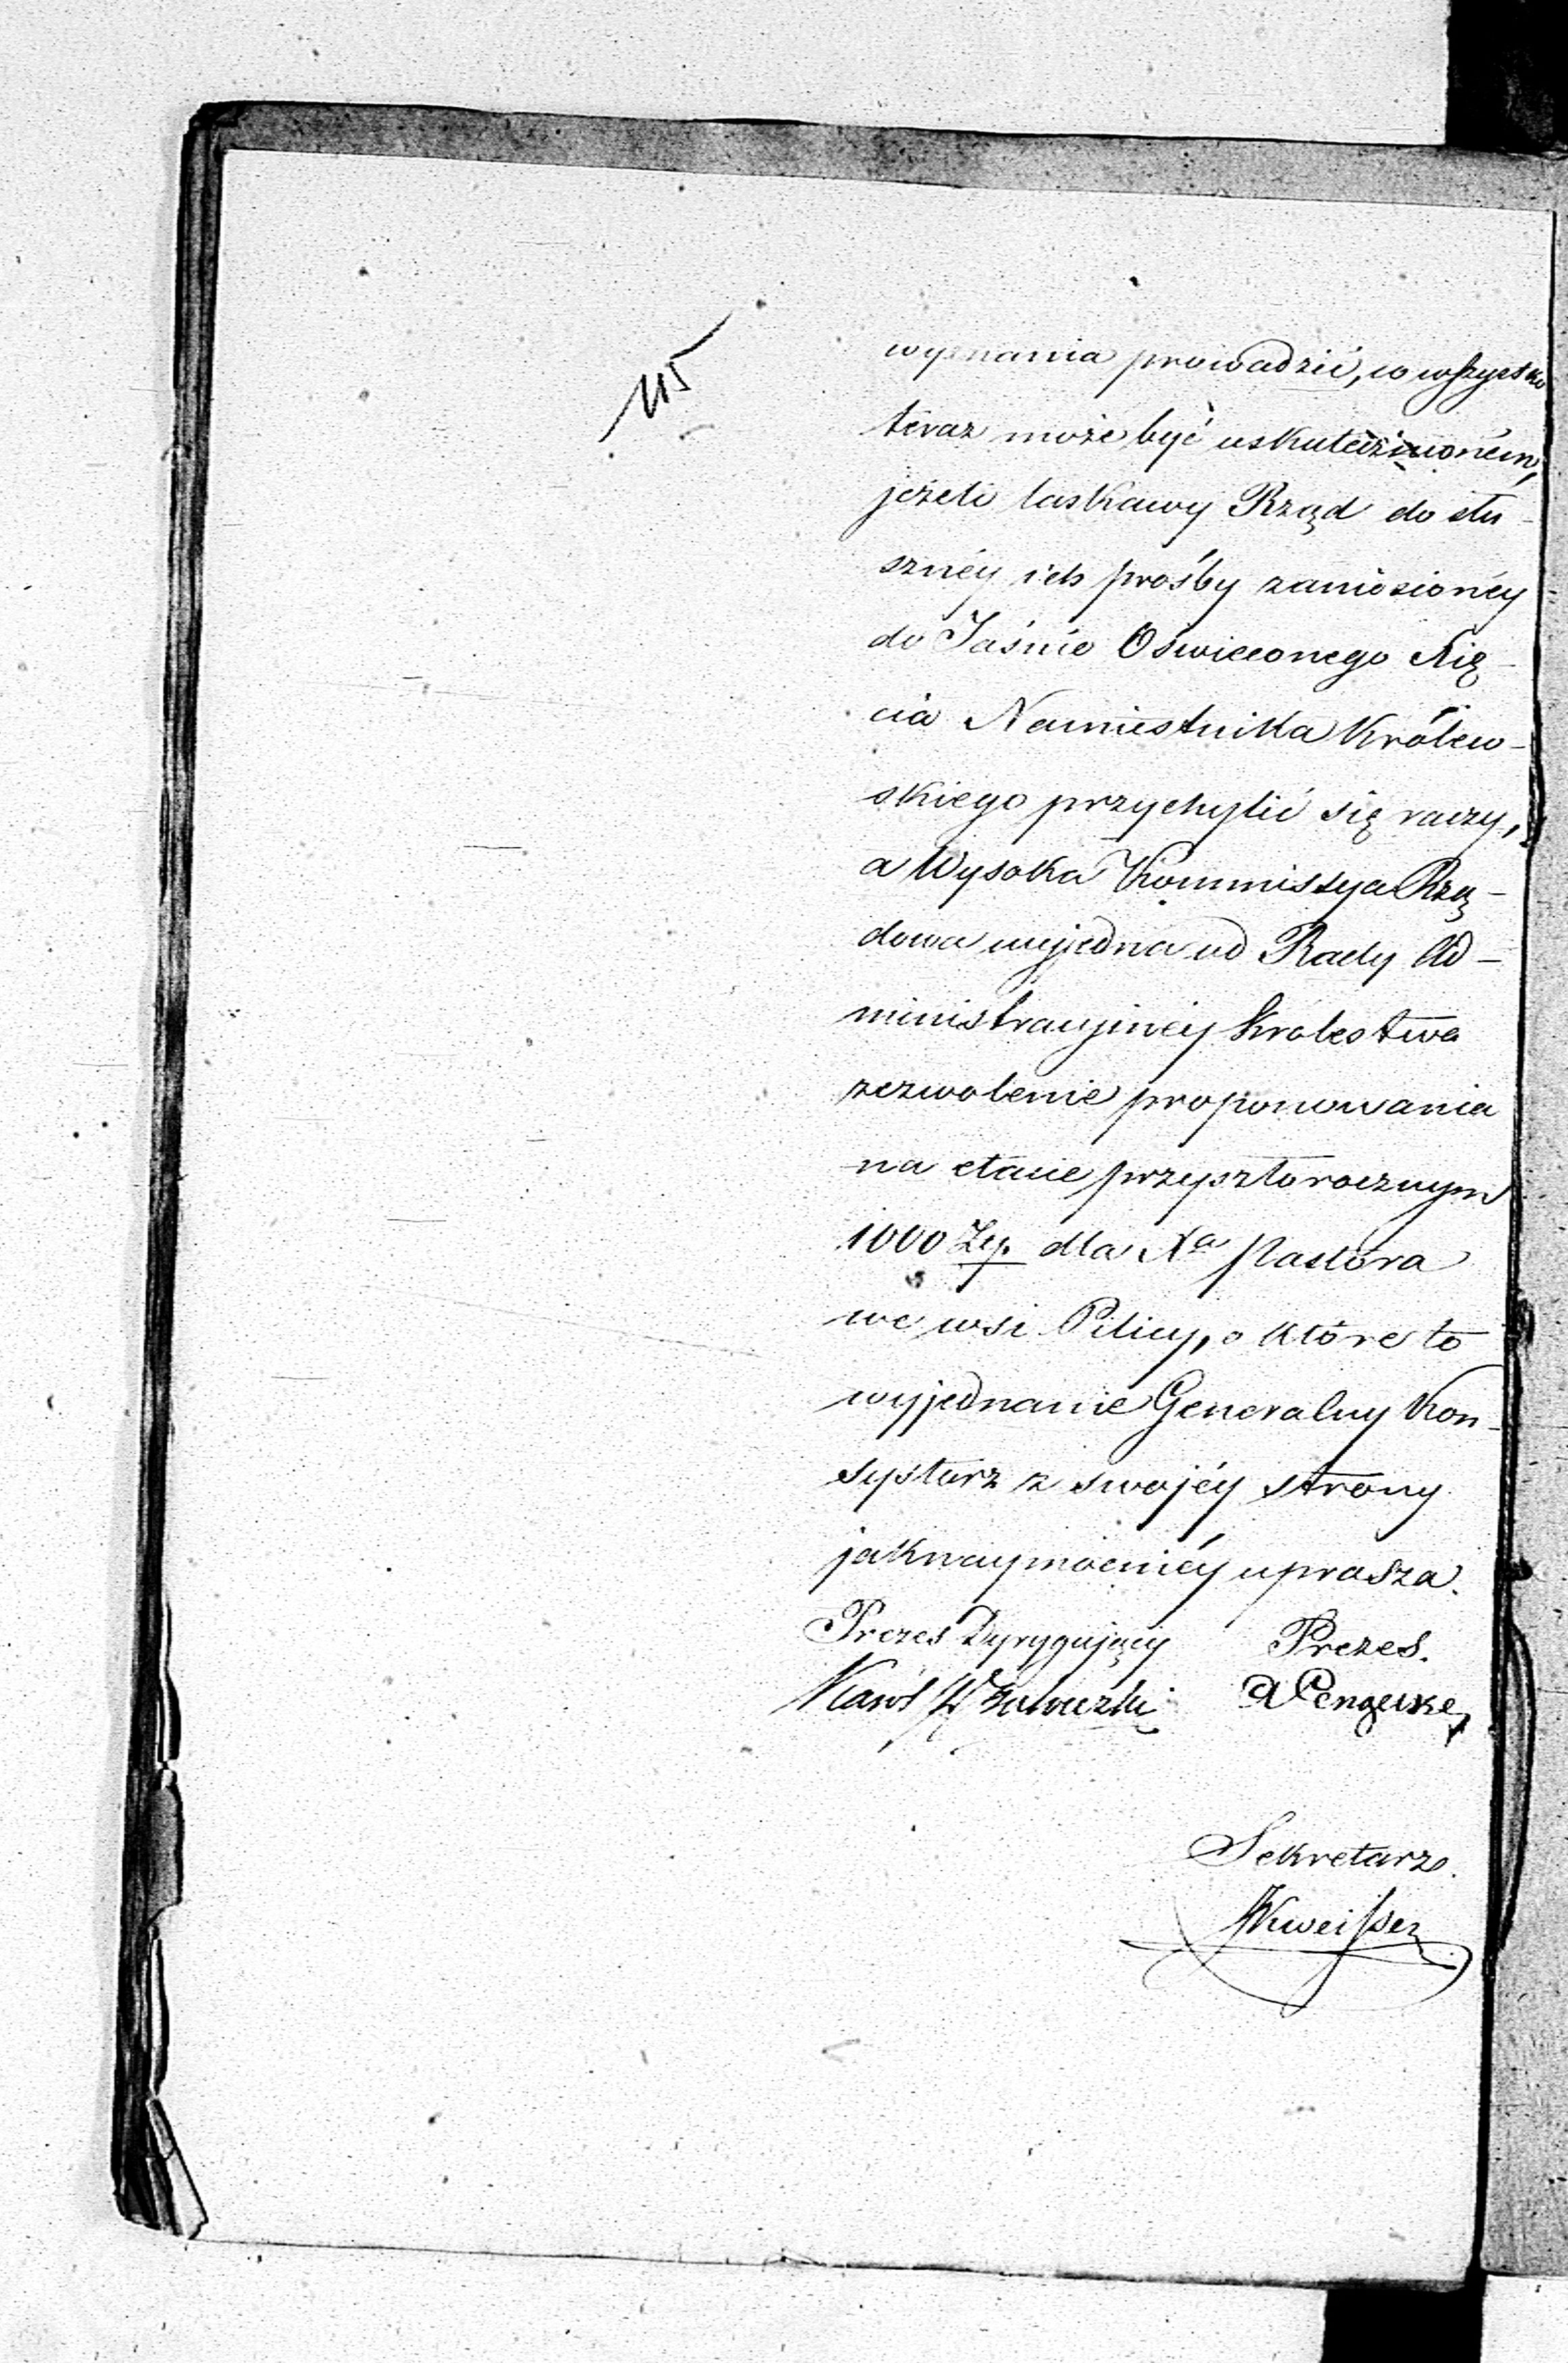 115
wyznania prowadzić, co wszystko
teraz może być uskutecznioném,
jeżeli łaskawy Rząd do słu-
sznéy ich prośby zaniesionéy
do Jaśnie Oświeconego Xię-
cia Namiestnika Królew-
skiego przychylić się raczy,
a Wysoka Kommissya Rzą-
dowa wyjedna od Rady Ad-
ministracyjnéy Krolestwa
zezwolenie proponowania
na etacie przyszłorocznym
1000 Złp. dla Xa Pastora
we wsi Pilicy, o które to
wyjednanie Generalny Kon-
systorz z swojéy strony
jaknaymocniéy uprasza.
Prezes Dyrygujący Prezes.
Karol
Sekretarz.